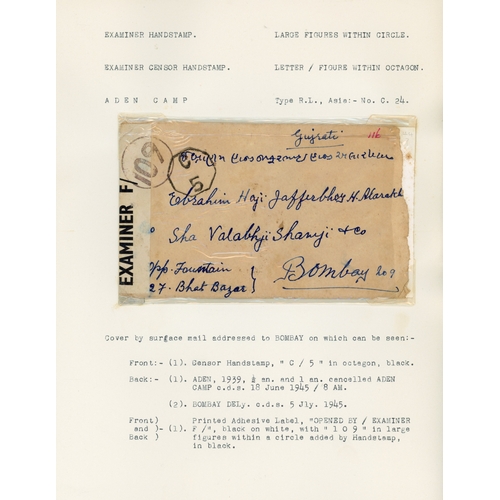 EXAMINER HANDSTAMP. LARGE FIGURES WITHIN CIRCLE.
EXAMINER CENSOR HANDSTAMP. LETTER / FIGURE WITHIN OCTAGON.
ADEN CAMP Type R.L., Asia:- No. C. 24.
Gujrati 116
109
C 5
EXAMINER F/
Ebrahim Haji Jafferbhoy H. Abarakh
Sha Valabhji Shamji & Co
Opp. Fountain
27. Bhat Bazar
Bombay no 9
Cover by surgace mail addressed to BOMBAY on which can be seen:-
Front:- (1). Censor Handstamp, " C / 5 " in octagon, black.
Back:- (1). ADEN, 1939, ½ an. and 1 an. cancelled ADEN
CAMP c.d.s. 18 June 1945 / 8 AM.
(2). BOMBAY DELy. c.d.s. 5 Jly. 1945.
Front) Printed Adhesive Label, "OPENED BY / EXAMINER
and )- (1). F /", black on white, with " 1 0 9 " in large
Back ) figures within a circle added by Handstamp,
in black.